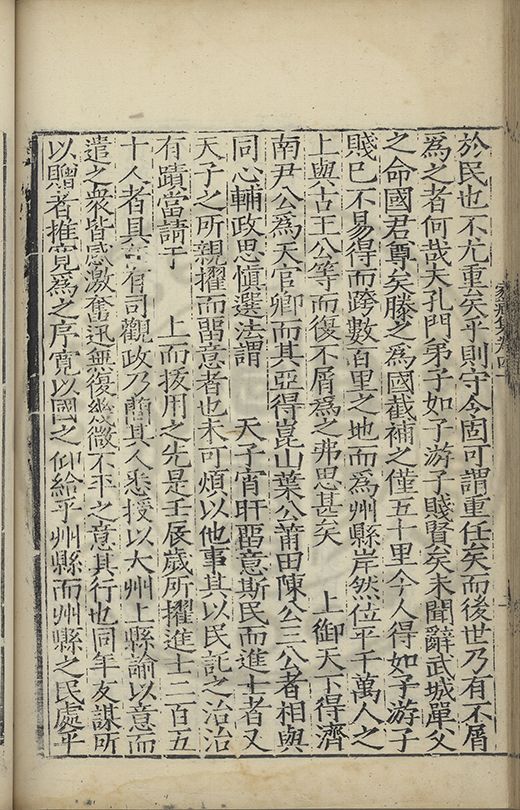 於民也不尤重矣乎則守令固可謂重任矣而後世乃有不屑
為之者何哉夫孔門弟子如子游子賤賢矣未聞辭武城單父
之命國君尊矣滕之為國截補之僅五十里今人得如子游子
賤已不易得而跨數百里之地而為州縣岸然位乎千萬人之
上與古王公等而復不屑為之弗思甚矣 上御天下得濟
南尹公為天官卿而其亞得崑山葉公莆田陳公三公者相與
同心輔政思慎選法謂 天子宵旰留意斯民而進士者又
天子之所親擢而留意者也未可煩以他事其以民託之治治
有蹟當請于 上而拔用之先是壬辰歲所擢進士二百五
十人者具 有司觀政乃 其人悉授以大州上縣諭以意而
遣之衆皆感激奮迅無復幾微不平之意其行也同年友謀所
以贈者推寬為之序寬以國之仰給乎州縣而州縣之民處乎
家藏集卷四